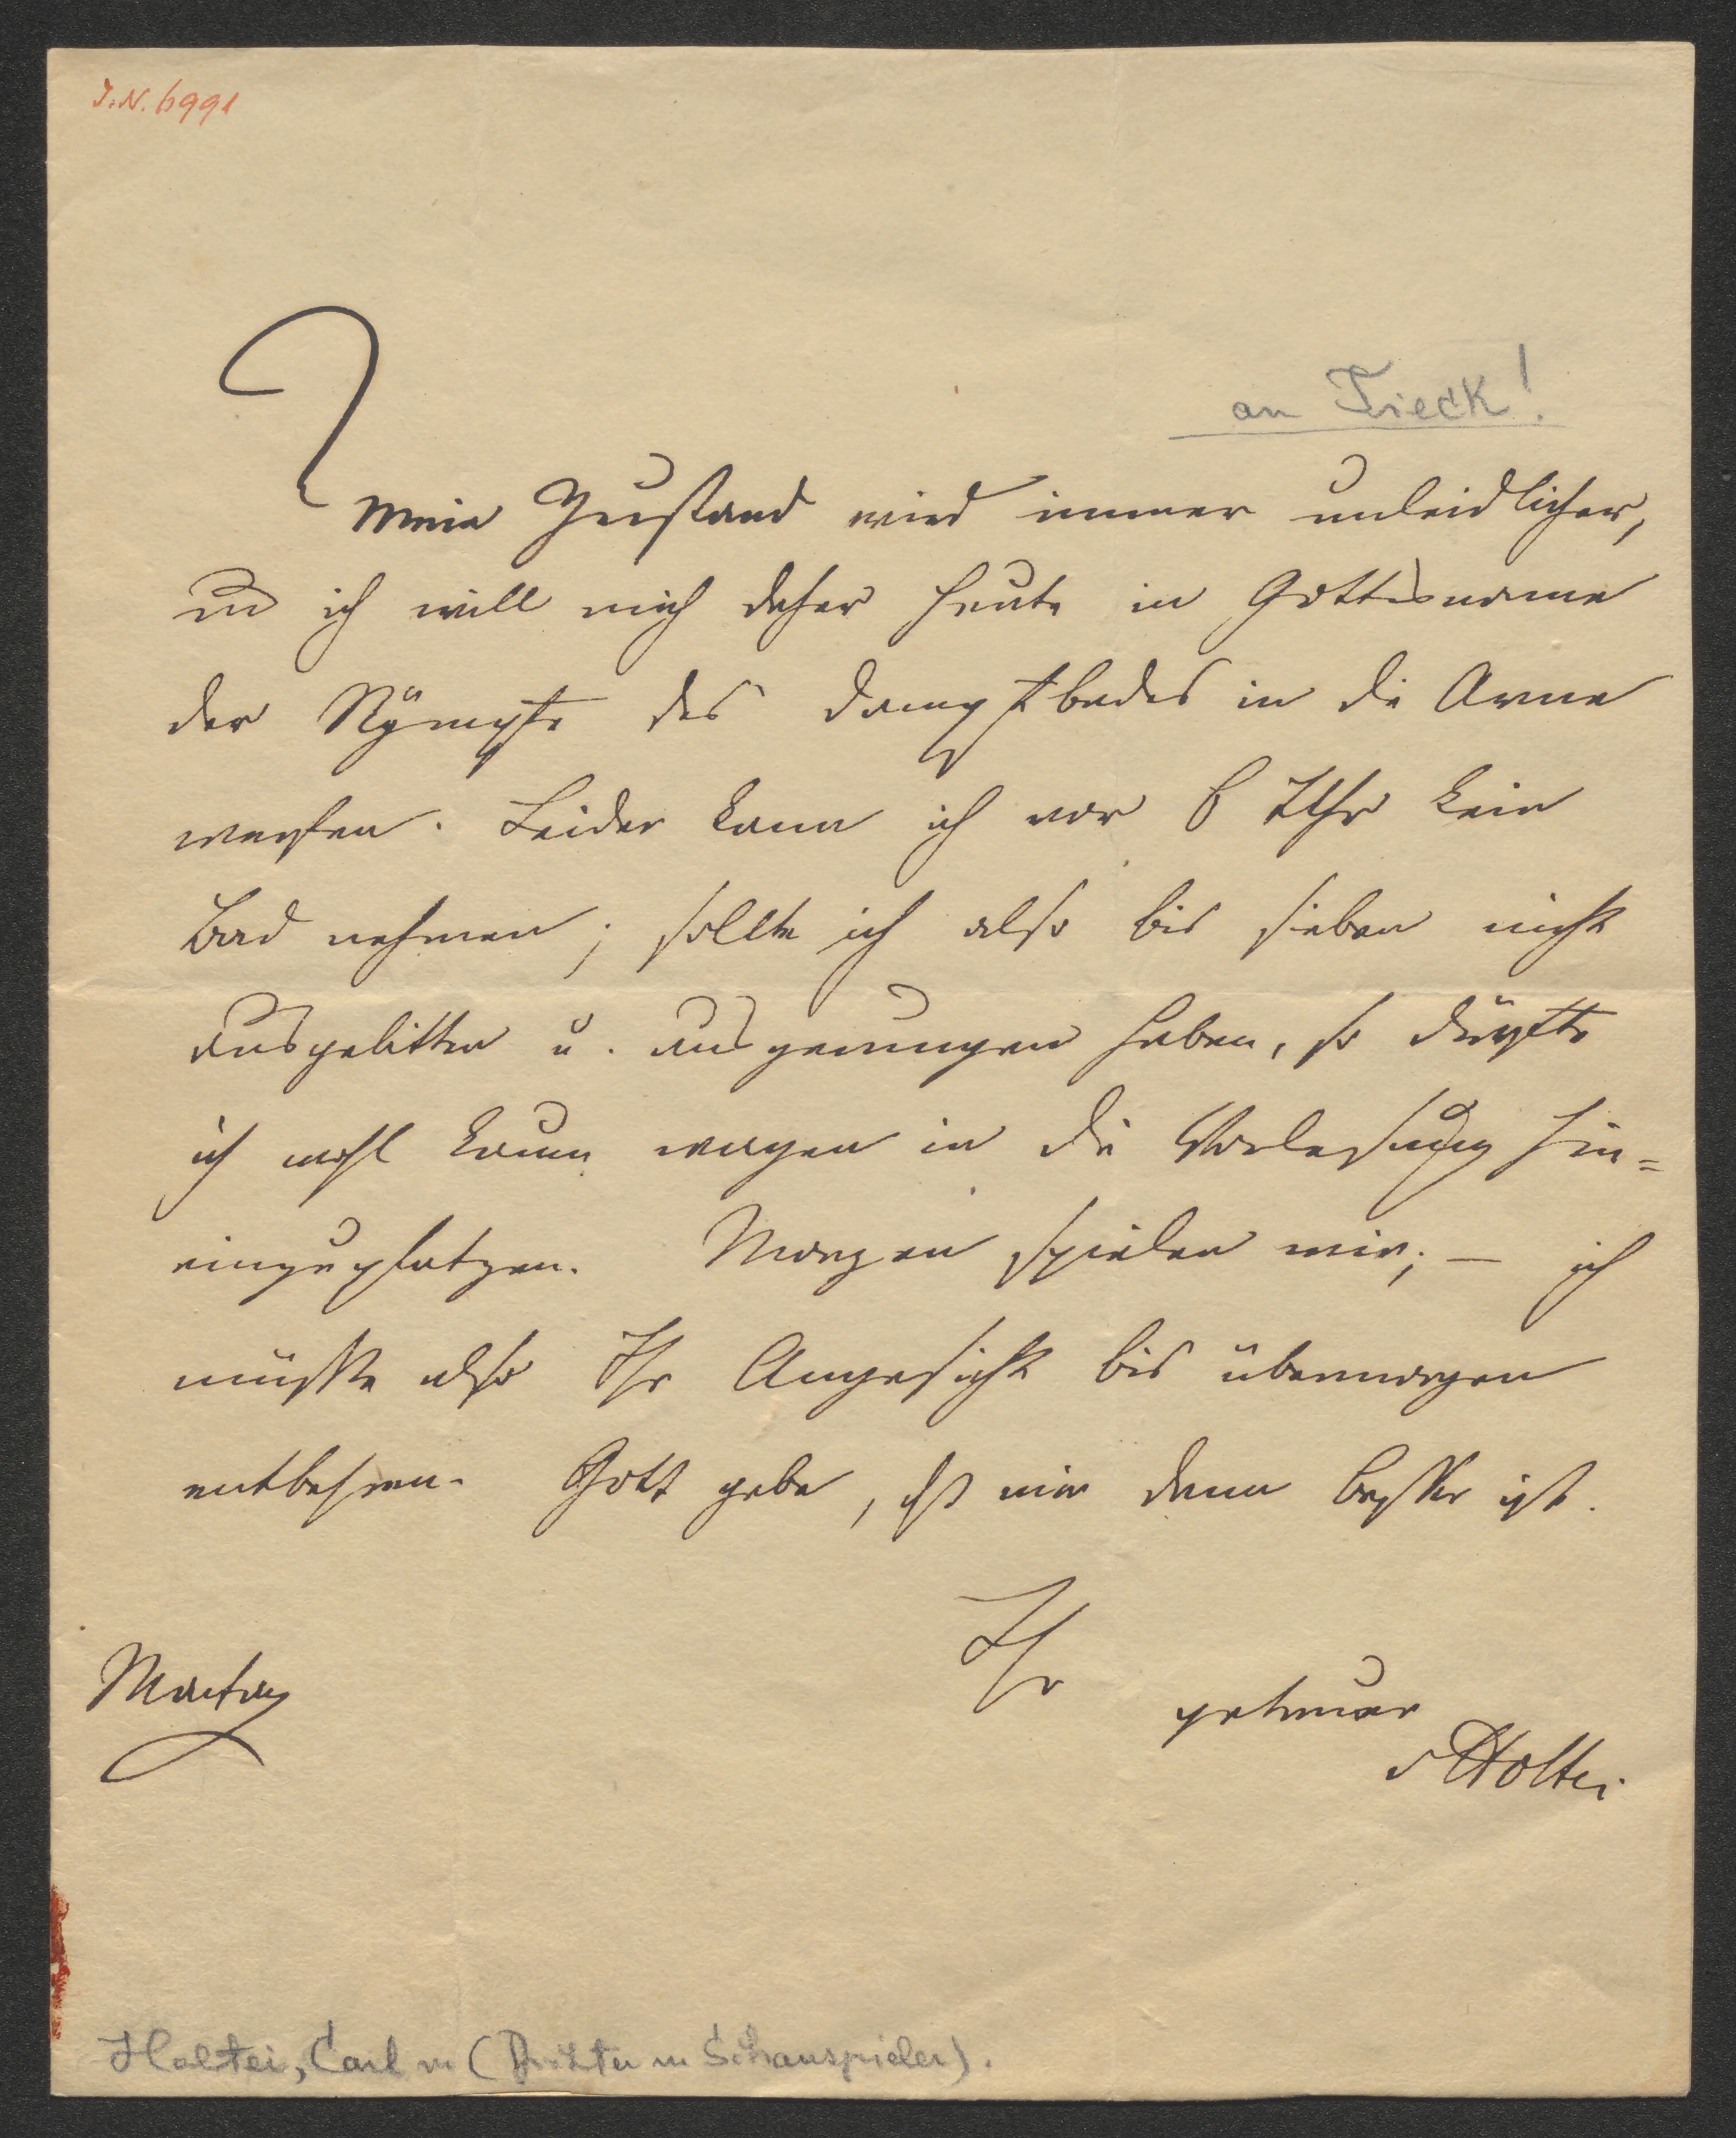 J.N. 6991
an Tieck!
Mein Zustand wird immer unleidlicher,
und ich will mich daher heute in Gottesname
der Nÿmpfe des Dampfbades in die Arme
werfen. Leider kann ich vor 6 Uhr kein
Bad nehmen; sollte ich also bis sieben nicht
ausgelitten u. ausgerungen haben, so dürfte
ich wohl kaum wagen in die Vorlesung hin=
einzuplatzen. Morgen spielen wir; — ich
müßte also Ihr Angesicht bis übermorgen
entbehren. Gott gebe, daß mir dann besser ist.
Ihr
getreuer
vHoltei
Montag
Holtei, Carl v. (Dichter u. Schauspieler).